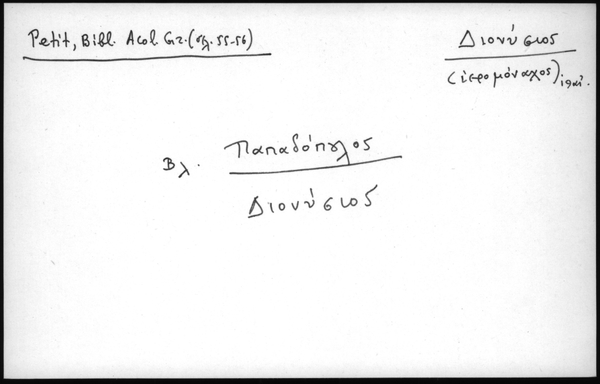 Petit, Bibl. Acol. Gr. (σλ. 55-56)
Διονύσιος
(ἱερομόναχος)
Βλ. Παπαδόπουλος
Διονύσιος